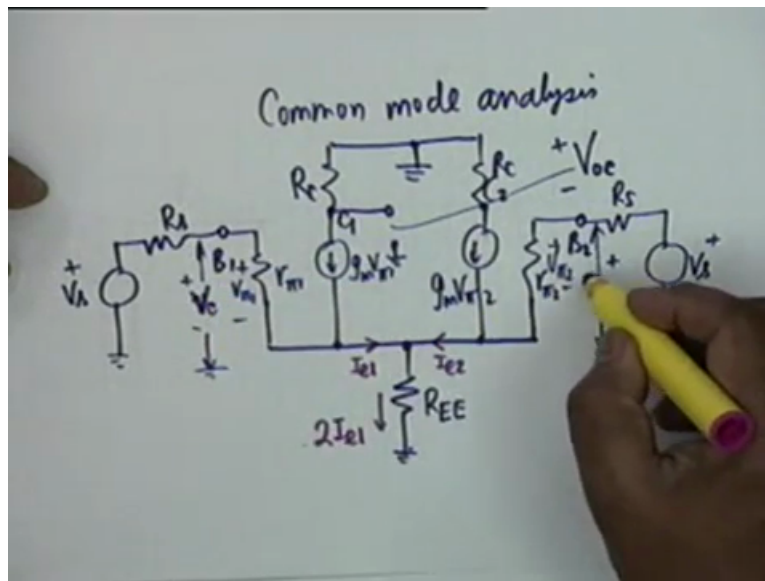 Common mode analysis
Rc
Rc
+
Voc
-
Rs
C1
C2
Rs
+
Vs
B1
+
Vπ1
-
rπ1
gmVπ1
gmVπ2
+
Vπ2
-
rπ2
B2
+
Vs
+
Vc
-
Ie1
Ie2
2Ie1
REE